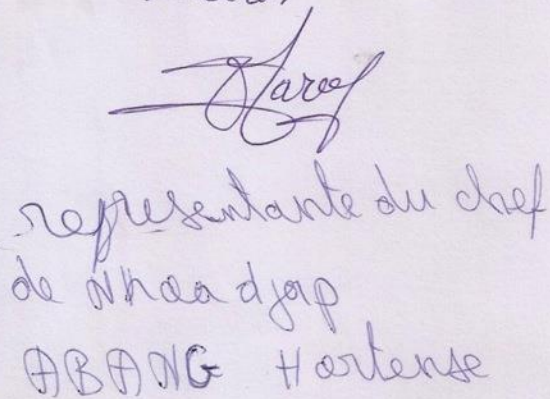 representante du chef
de Nkoa djap
ABANG Hortense